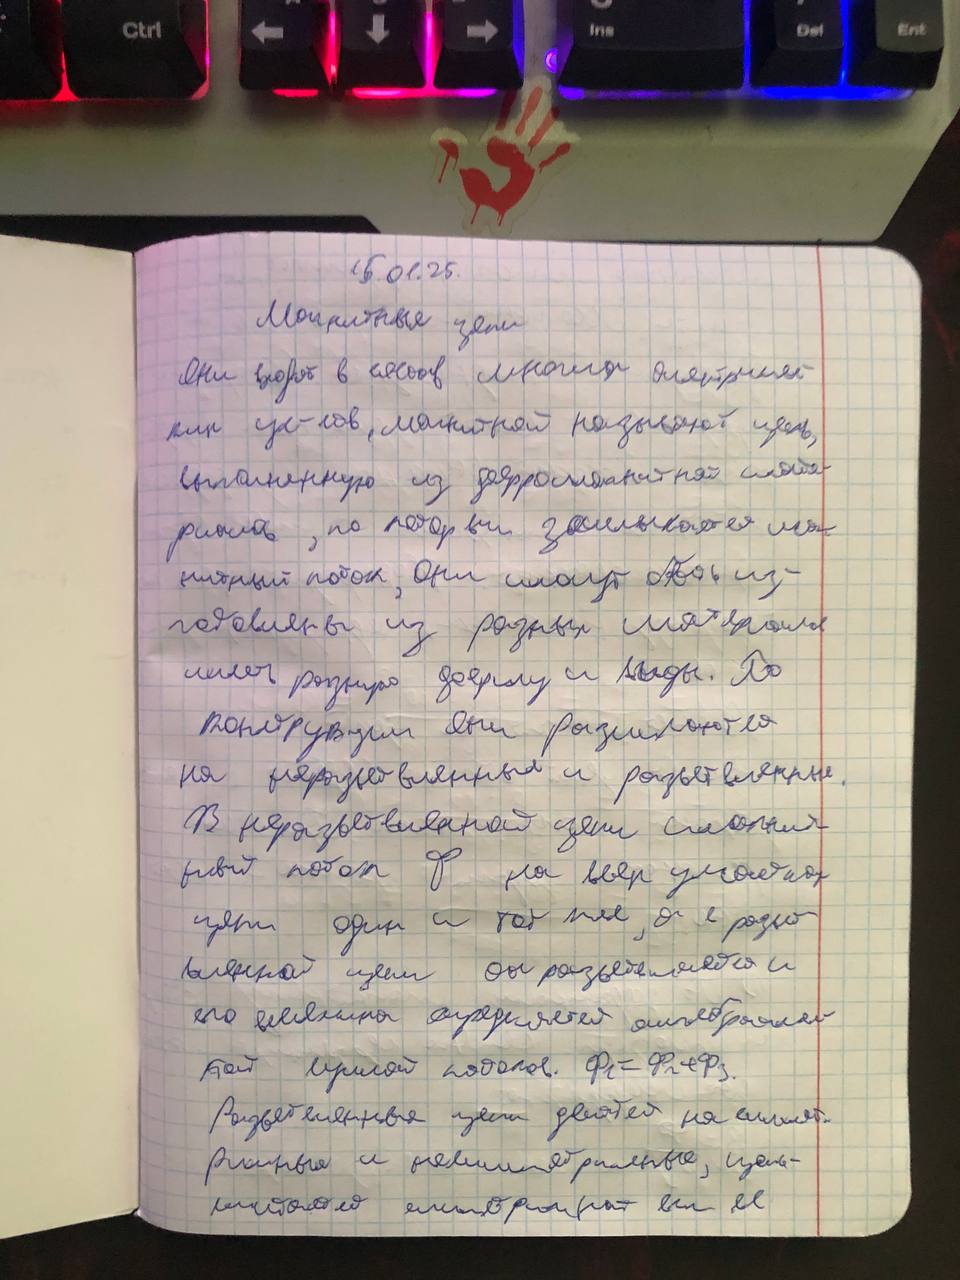 Ctrl
Ins
Del
Ent
15.01.25.
Магнитные цепи
Они входят в состав многих электричес
ких ус-тв, магнитной называют цепь,
выполненную из ферромагнитной мате-
риалов, по которым замыкается маг-
нитный поток, они могут быть из-
готовлены из разных материалов
иметь разную форму и виды. По
конструкции они различаются
на неразветвленные и разветвленные.
В неразветвленной цепи магнит-
ный поток Ф на всех участках
цепи один и тот же, а в развет
вленной цепи он разветвляется и
его величина определяется алгебраичес
кой суммой потоков. Ф1=Ф2+Ф3.
Разветвленные цепи делятся на симмет-
ричные и несимметричные, цепь
считается симметричной если её